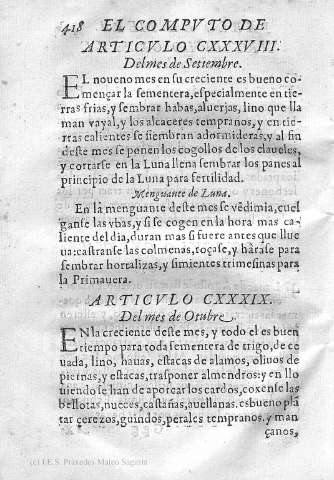 418 EL COMPVTO DE
ARTICVLO CXXXVIII.
Del mes de Settembre.
EL noueno mes en su creciente es bueno co-
mençar la sementera, especialmente en tie-
rras frias, y sembrar habas, aluerjas, lino que lla
man vayal, y los alcaceres tempranos, y en tie-
rras calientes se siembran adormideras, y al fin
deste mes se ponen los cogollos de los claueles,
y cortarse en la Luna llena sembrar los panes al
principio de la Luna para fertilidad.
Menguante de Luna.
En la menguante deste mes se vẽdimia, cuel
ganse las vbas, y si se cogen en la hora mas ca-
liente del dia, duran mas si fuere antes que llue
ua: castranse las colmenas, roçase, y hàrase para
sembrar hortalizas, y simientes trimesinas para
la Primauera.
ARTICVLO CXXXIX.
Del mes de Otubre.
ENla creciente deste mes, y todo el es buen
tiempo para toda sementera de trigo, de ce
uada, lino, hauas, estacas de alamos, oliuos de
piernas, y estacas, trasponer almendros: y en llo
uiendo se han de aporcar los cardos, coxense las
bellotas, nueces, castañas, auellanas. es bueno plã
tar cerezos, guindos, perales tempranos, y man
çanos,
(c) I.E.S. Práxedes Mateo Sagasta